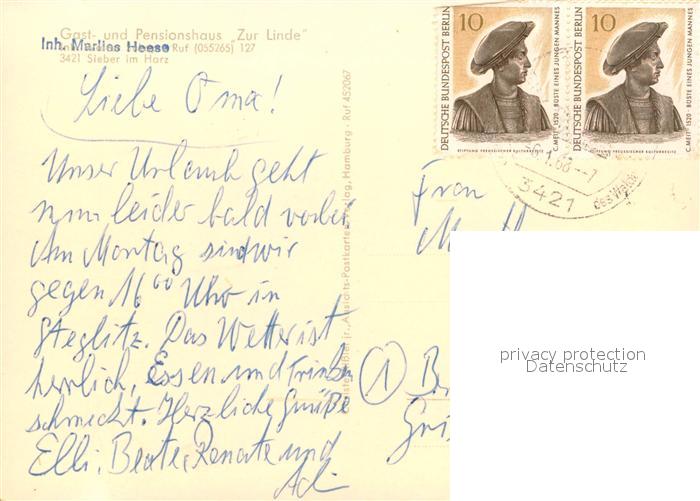 Gast- und Pensionshaus "Zur Linde"
Inh. Marlies Heese Ruf (055265) 127
3421 Sieber im Harz
Liebe Oma!
Unser Urlaub geht
nun leider bald vorbei
Am Montag sind wir
gegen 16 00 Uhr in
Steglitz. Das Wetter ist
herrlich, Essen und Trinken
schmeckt. Herzliche Grüße
Elli, Beate, Renate und
Postkartenverlag, Hamburg · Ruf 452067
10
DEUTSCHE BUNDESPOST BERLIN
C. MEIT 1520 · BÜSTE EINES JUNGEN MANNES
STIFTUNG PREUSSISCHER KULTURBESITZ
10
DEUTSCHE BUNDESPOST BERLIN
C. MEIT 1520 · BÜSTE EINES JUNGEN MANNES
STIFTUNG PREUSSISCHER KULTURBESITZ
1.68 -7
3421
Frau
1
privacy protection
Datenschutz